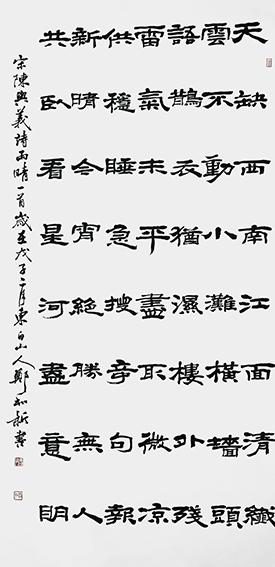 天缺西南江面清纖
雲不動小灘橫墻頭
語鵲衣猶濕樓外残
雷氣未平盡取微凉
供穩睡急搜奇句報
新晴今宵絕勝無人
共臥看星河盡意明
宋陳與義詩雨晴一首歲在戊子二月東白山人鄭新書